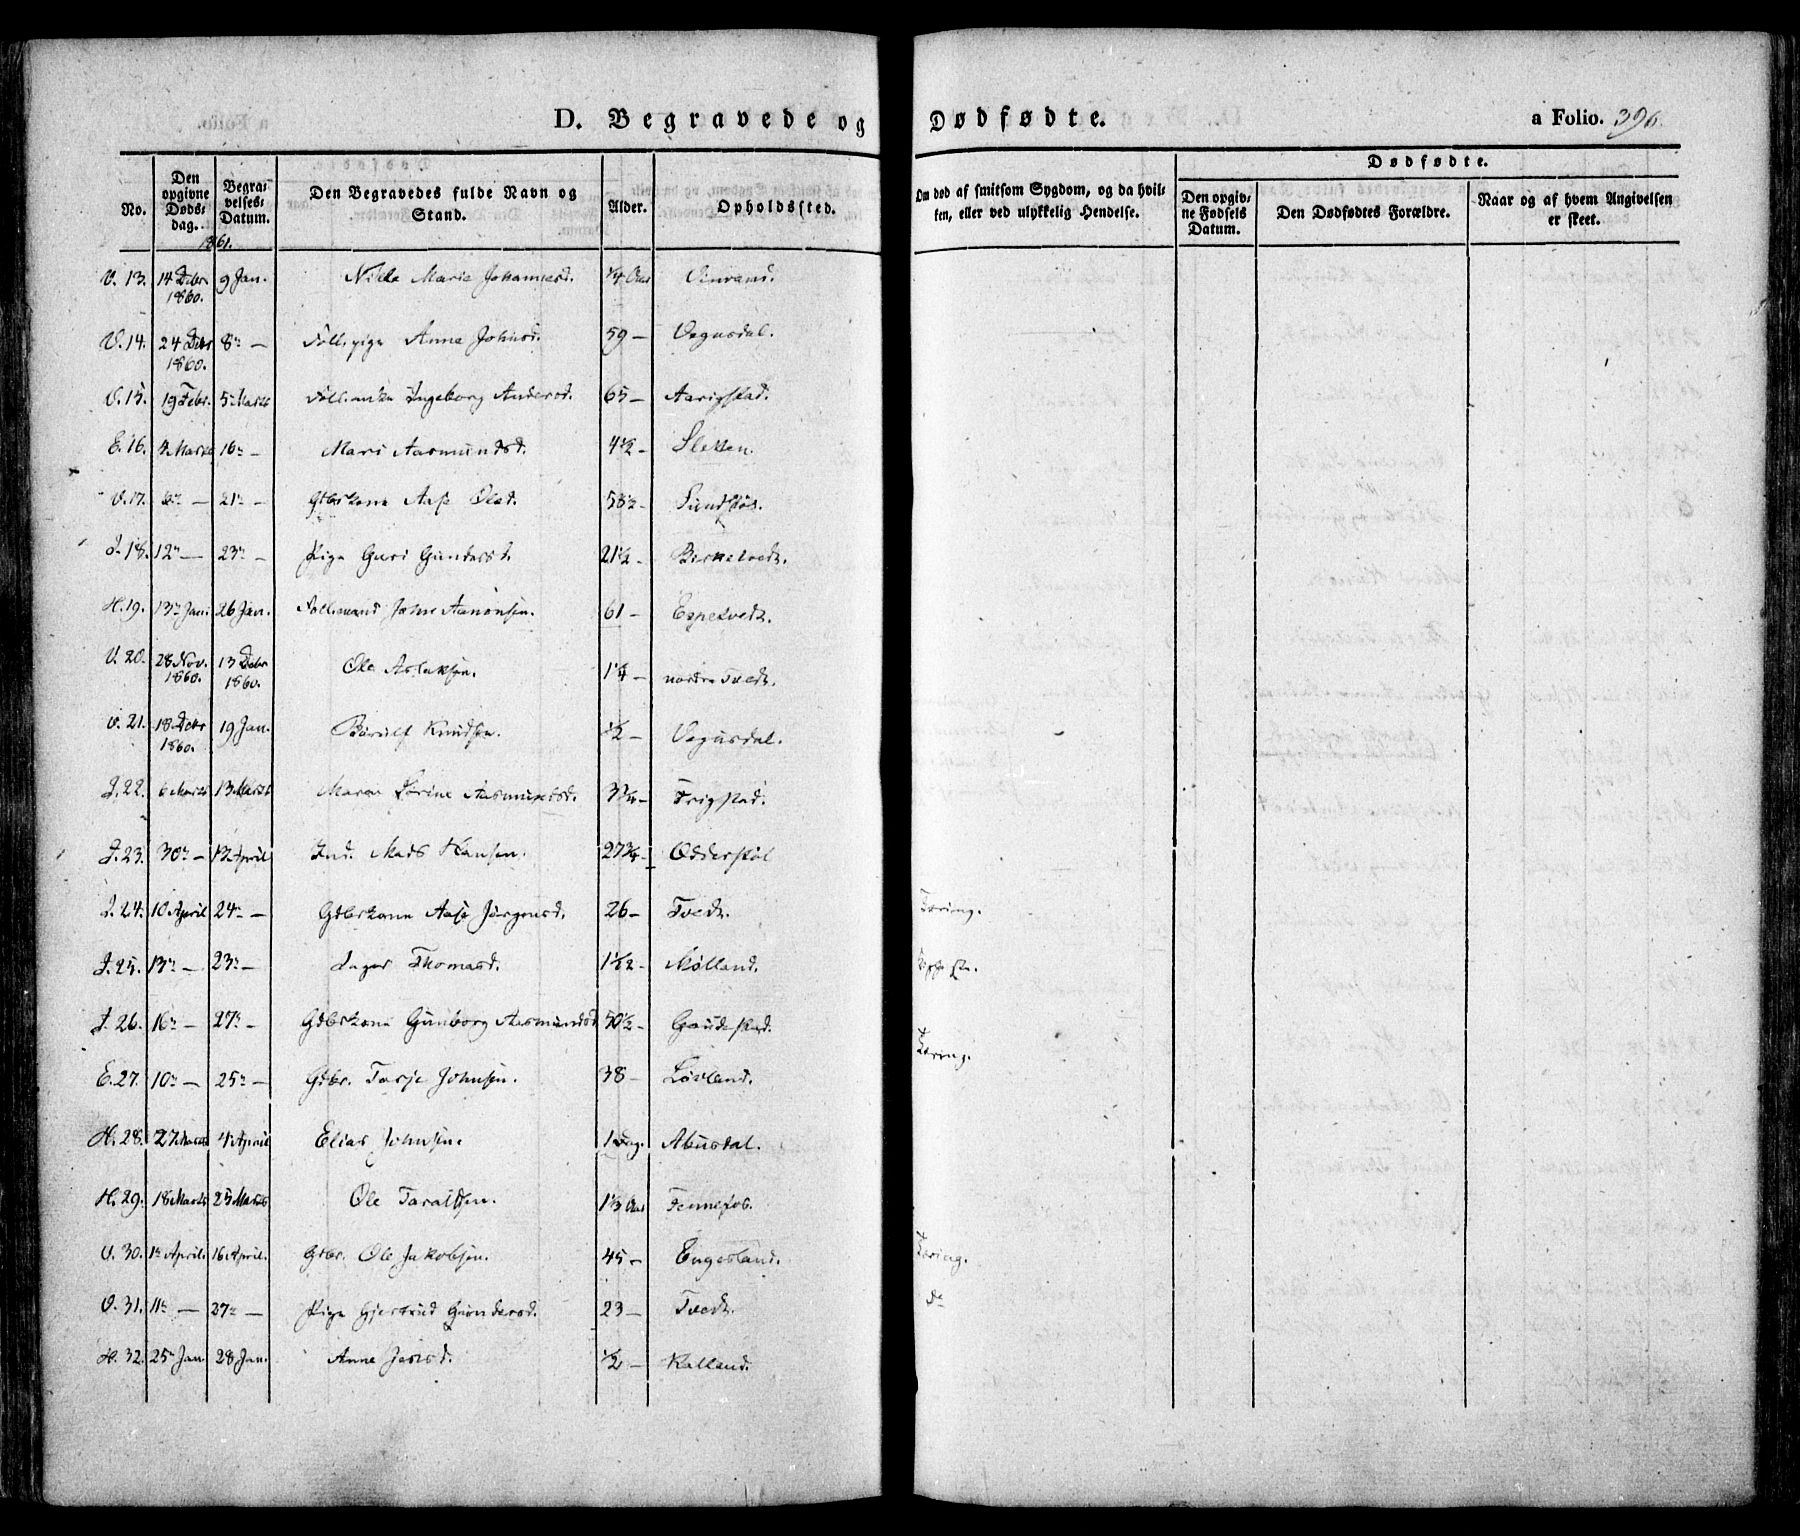 D. Begravede og Dødfødte. a Folio. 396.
No.
Den opgivne Døds-dag.
Begra-velses-Datum.
Den Begravedes fulde Navn og Stand.
Alder.
Opholdssted.
Om død af smitsom Sygdom, og da hvil-ken, eller ved ulykkelig Hendelse.
Dødfødte.
Den opgiv-ne Fødsels Datum.
Den Dødfødtes Forældre.
Naar og af hvem Angivelsen er skeet.
1861.
V. 13. 14 Debr 1860. 9 Jan. Nille Marie Johannesd. 1/4 Aar
V. 14. 24 Debr 1860. 8de — Anne Johnsd. 59 — Vegusdal.
V. 15. 19 Febr. 5te Marts Ingeborg Andersd. 65 — Aarigstad.
E. 16. 4 Marts 16de — Mari Aasmundsd. 4 1/2 — Sletten.
V. 17. 6te — 21de — Gbrskone Aase Olsd. 58 1/2 — Sundstøl.
J. 18. 12te — 23de — Pige Guri Gundersd. 21 1/2 — Birketvedt.
H. 19. 13de Jan. 26 Jan. Follemand John Aanonsen. 61 — Espetvedt.
V. 20. 28 Nov. 1860. 13 Debr 1860. Ole Aslaksen. 1 1/4 — nordre Tvedt.
V. 21. 18 Debr 1860. 19 Jan. Knudsen. 1/2 — Vegusdal.
J. 22. 6 Marts 13 Marts Maren Aasmundsd. 3 3/4 — Frigstad.
J. 23. 30te — 13 April Ind. Mads Hansen. 27 3/4 — Odderstøl
J. 24. 10 April 24de — Gbrskone Aase Jørgensd. 26 — Tvedt. Tæring.
J. 25. 13de — 23de — Inger Thomasd. 1 1/2 — Mølland.
J. 26. 16de — 27de — Gbrskone Gunborg Aasmundsd. 50 1/2 — Gaudestad. Tæring.
E. 27. 10de — 25de — Gbr. Tarje Johnsen. 38 — Løvland.
H. 28. 27 Marts 4 April Elias Johnsen. 1 Dag. Abusdal.
H. 29. 18 Marts 25 Marts Ole Taraldsen. 1 1/3 Aar Fennefos.
V. 30. 1te April. 16 April. Gbr. Ole Jakobsen. 45 — Engesland. Tæring.
V. 31. 11te — 27de — Pige Gjertrud Gundersd. 23 — Tvedt. do
H. 32. 25de Jan. 28 Jan. Anne Jensd. 1/2 — Kalland.